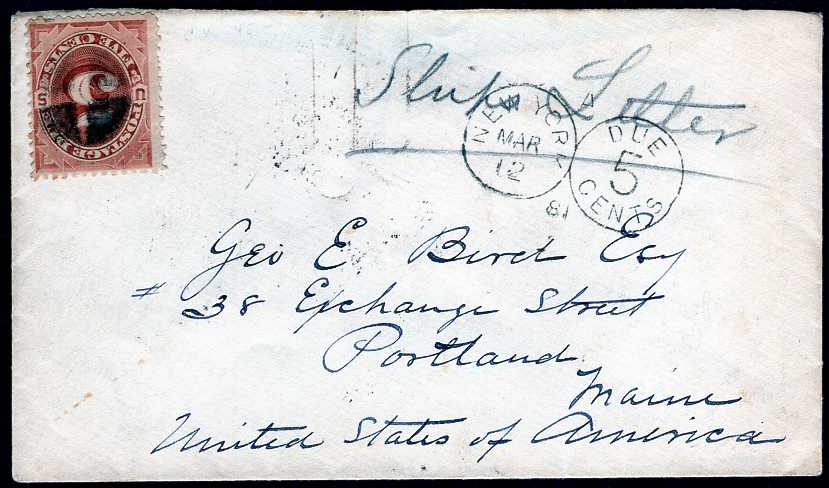 POSTAGE DUE
5
FIVE CENTS
U S
Ship Letter
NEW YORK
MAR
12
81
DUE
5
CENTS
Geo E Bird Esq
# 38 Exchange Street
Portland
Maine
United States of America